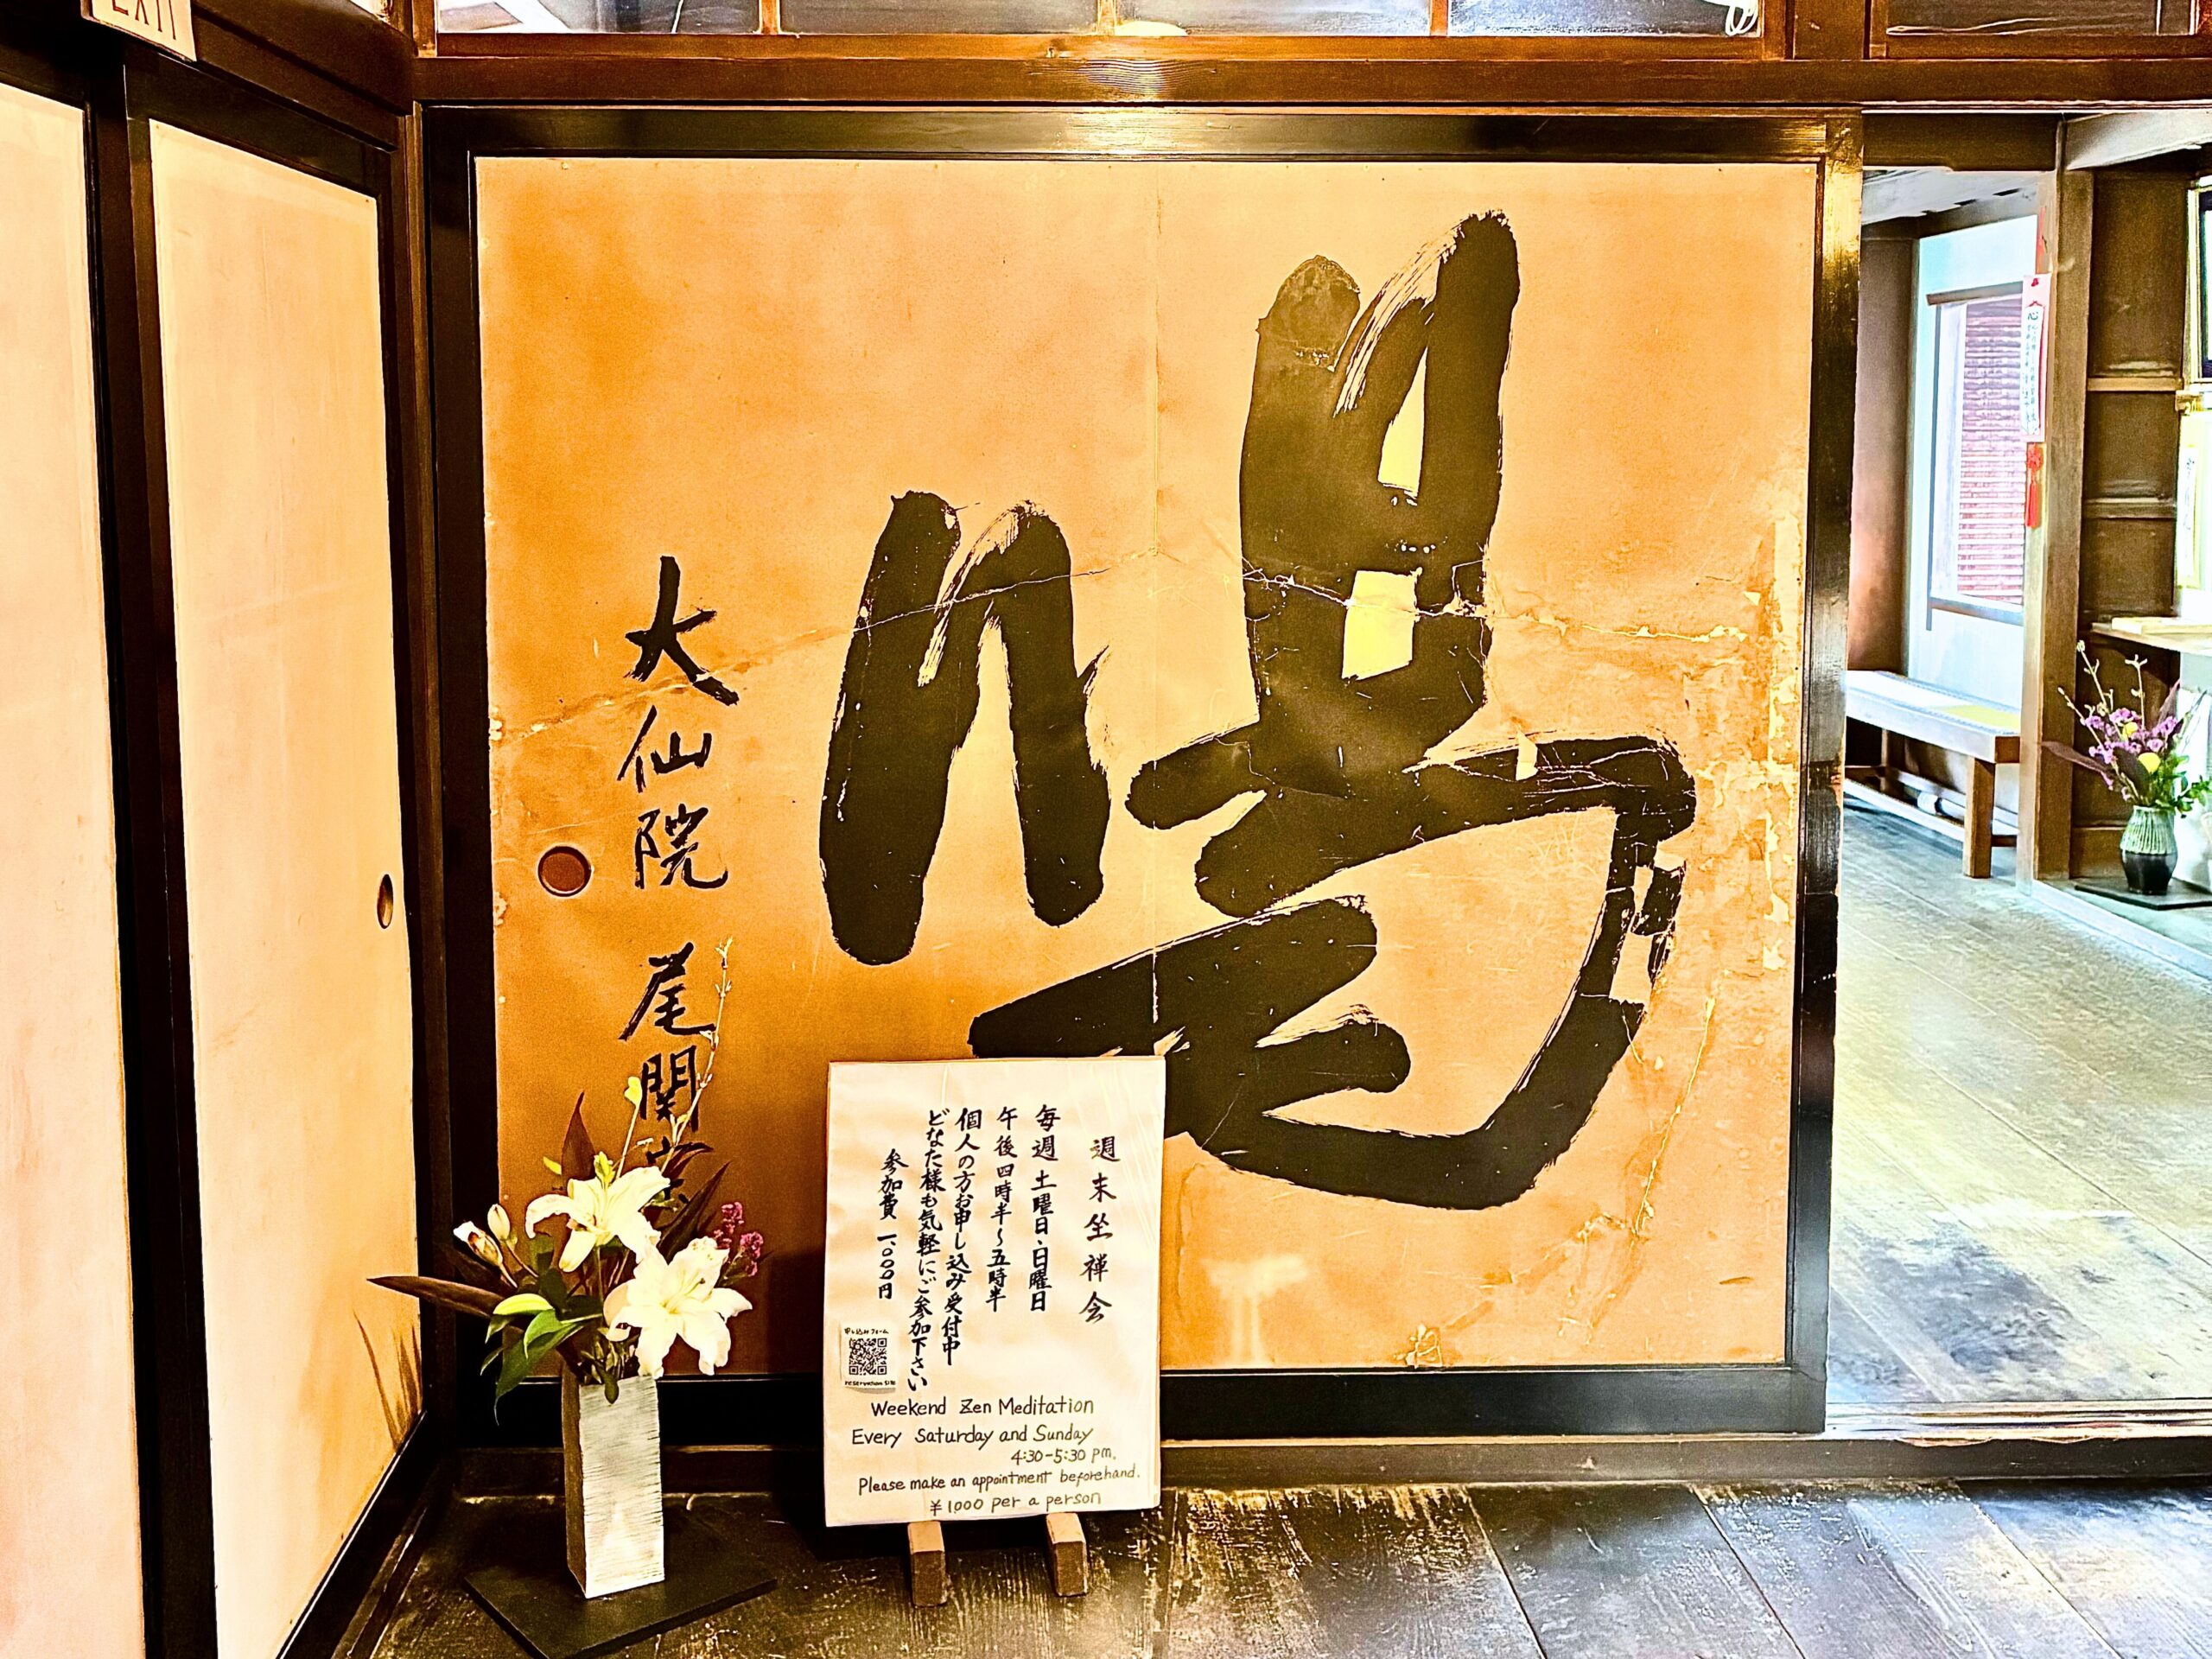 EXIT
喝
大仙院 尾関宗
週末坐禅会
毎週 土曜日、日曜日
午後四時半〜五時半
個人の方お申し込み受付中
どなた様も気軽にご参加下さい
参加費 一、〇〇〇円
申し込みフォーム
reservation site
Weekend Zen Meditation
Every Saturday and Sunday
4:30-5:30 pm.
Please make an appointment beforehand.
¥1000 per a person